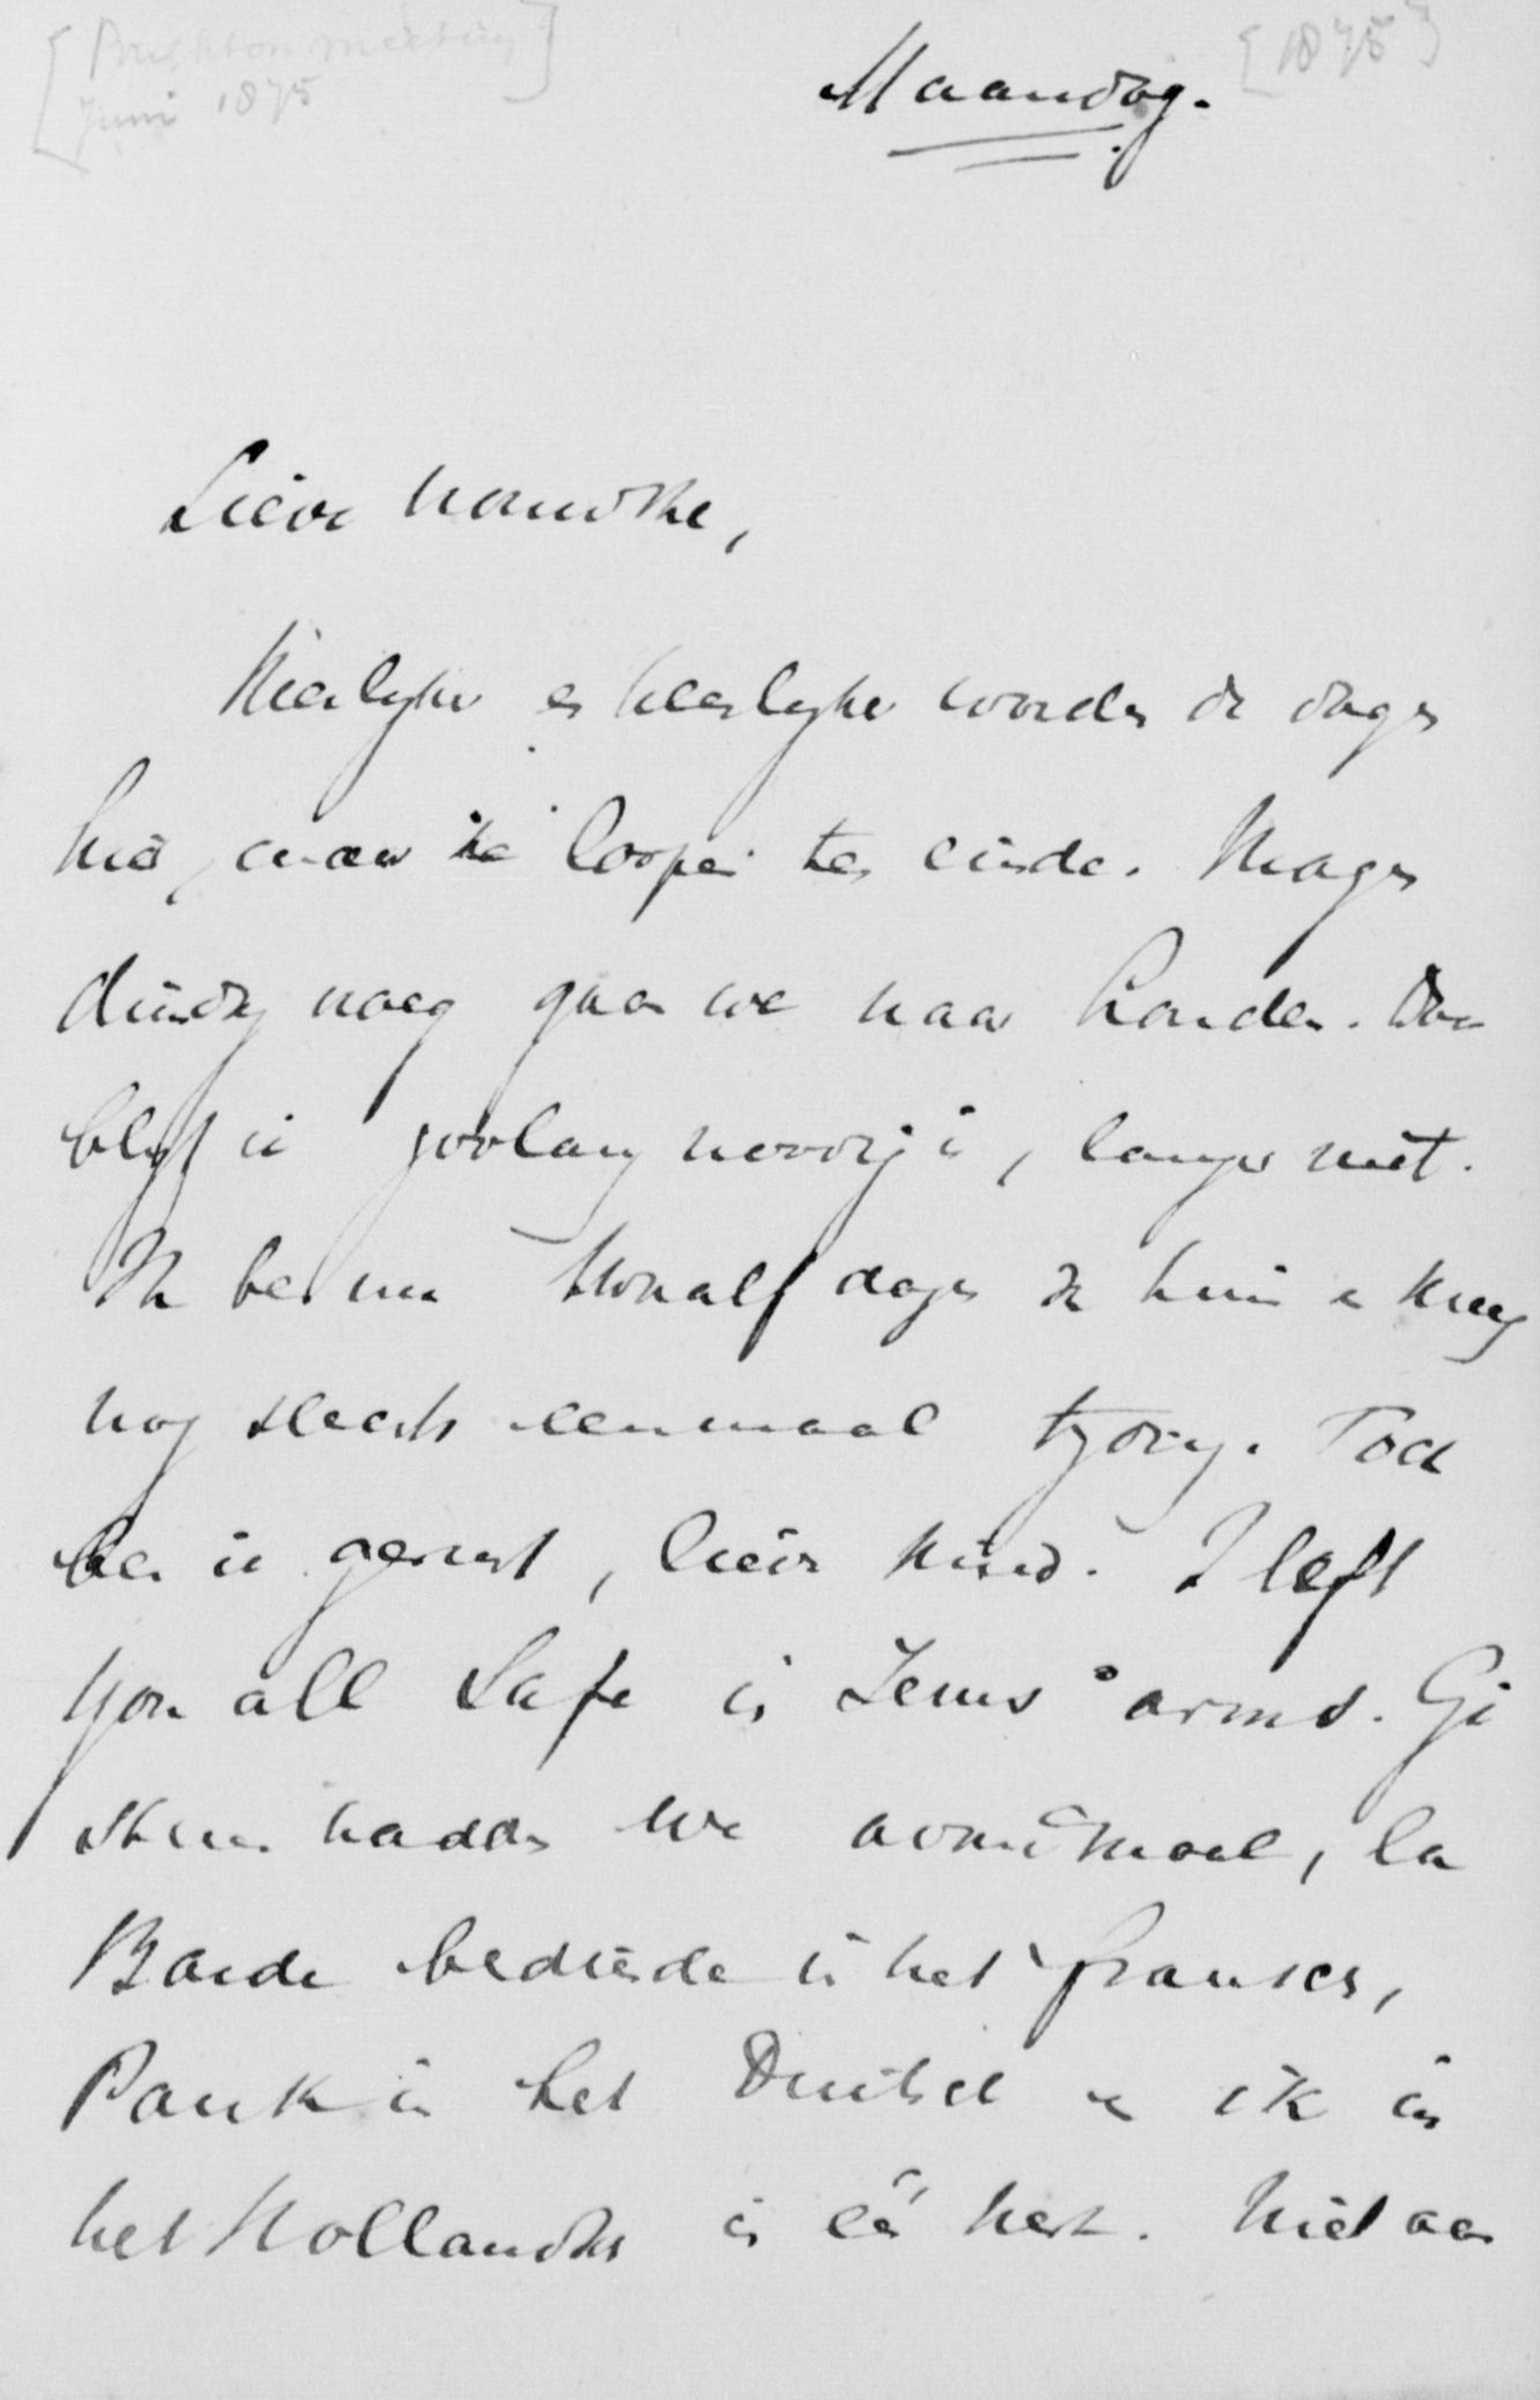 [Brighton meeting] [1875]
Juni 1875
Maandag.
Lieve vrouwtke,
Heerlijker en heerlijker worden de dagen
hier, maar ze loopen ten einde. Morgen
dinsdag gaan we naar Londen. Daar
blijf ik zoolang noodig is, langer niet.
Ik ben nu twaalf dagen de huis en kreeg
nog slechts eenmaal tijding. Toch
ben ik gerust, lieve kind. I left
you all safe in Jesus' arms. Gi
steren hadden we avondmaal, la
Baide bediende in het franses,
Pank in het Duitsch en ik in
het Hollandsch in één kerk. Niet aan